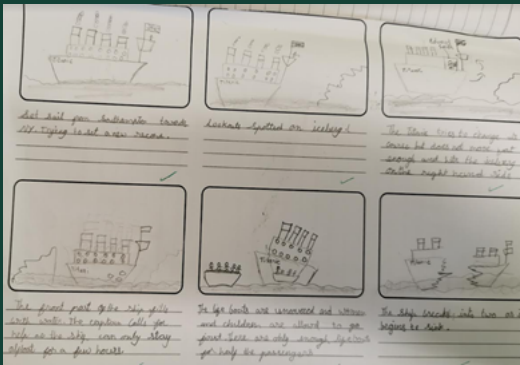 Set sail from Southampton towards
NY. Trying to set a new record.
Lookouts spotted an iceberg!
The Titanic tries to change its
course but does not move fast
enough and hits the iceberg
on the right hand side
Titanic
Titanic
Titanic
The front part of the ship fills
with water. The captain calls for
help as the ship can only stay
afloat for a few hours
The life boats are and women
and children are allowed to go
first. There are only enough lifeboats
for half the passengers
The ship breaks into two and
begins to sink.